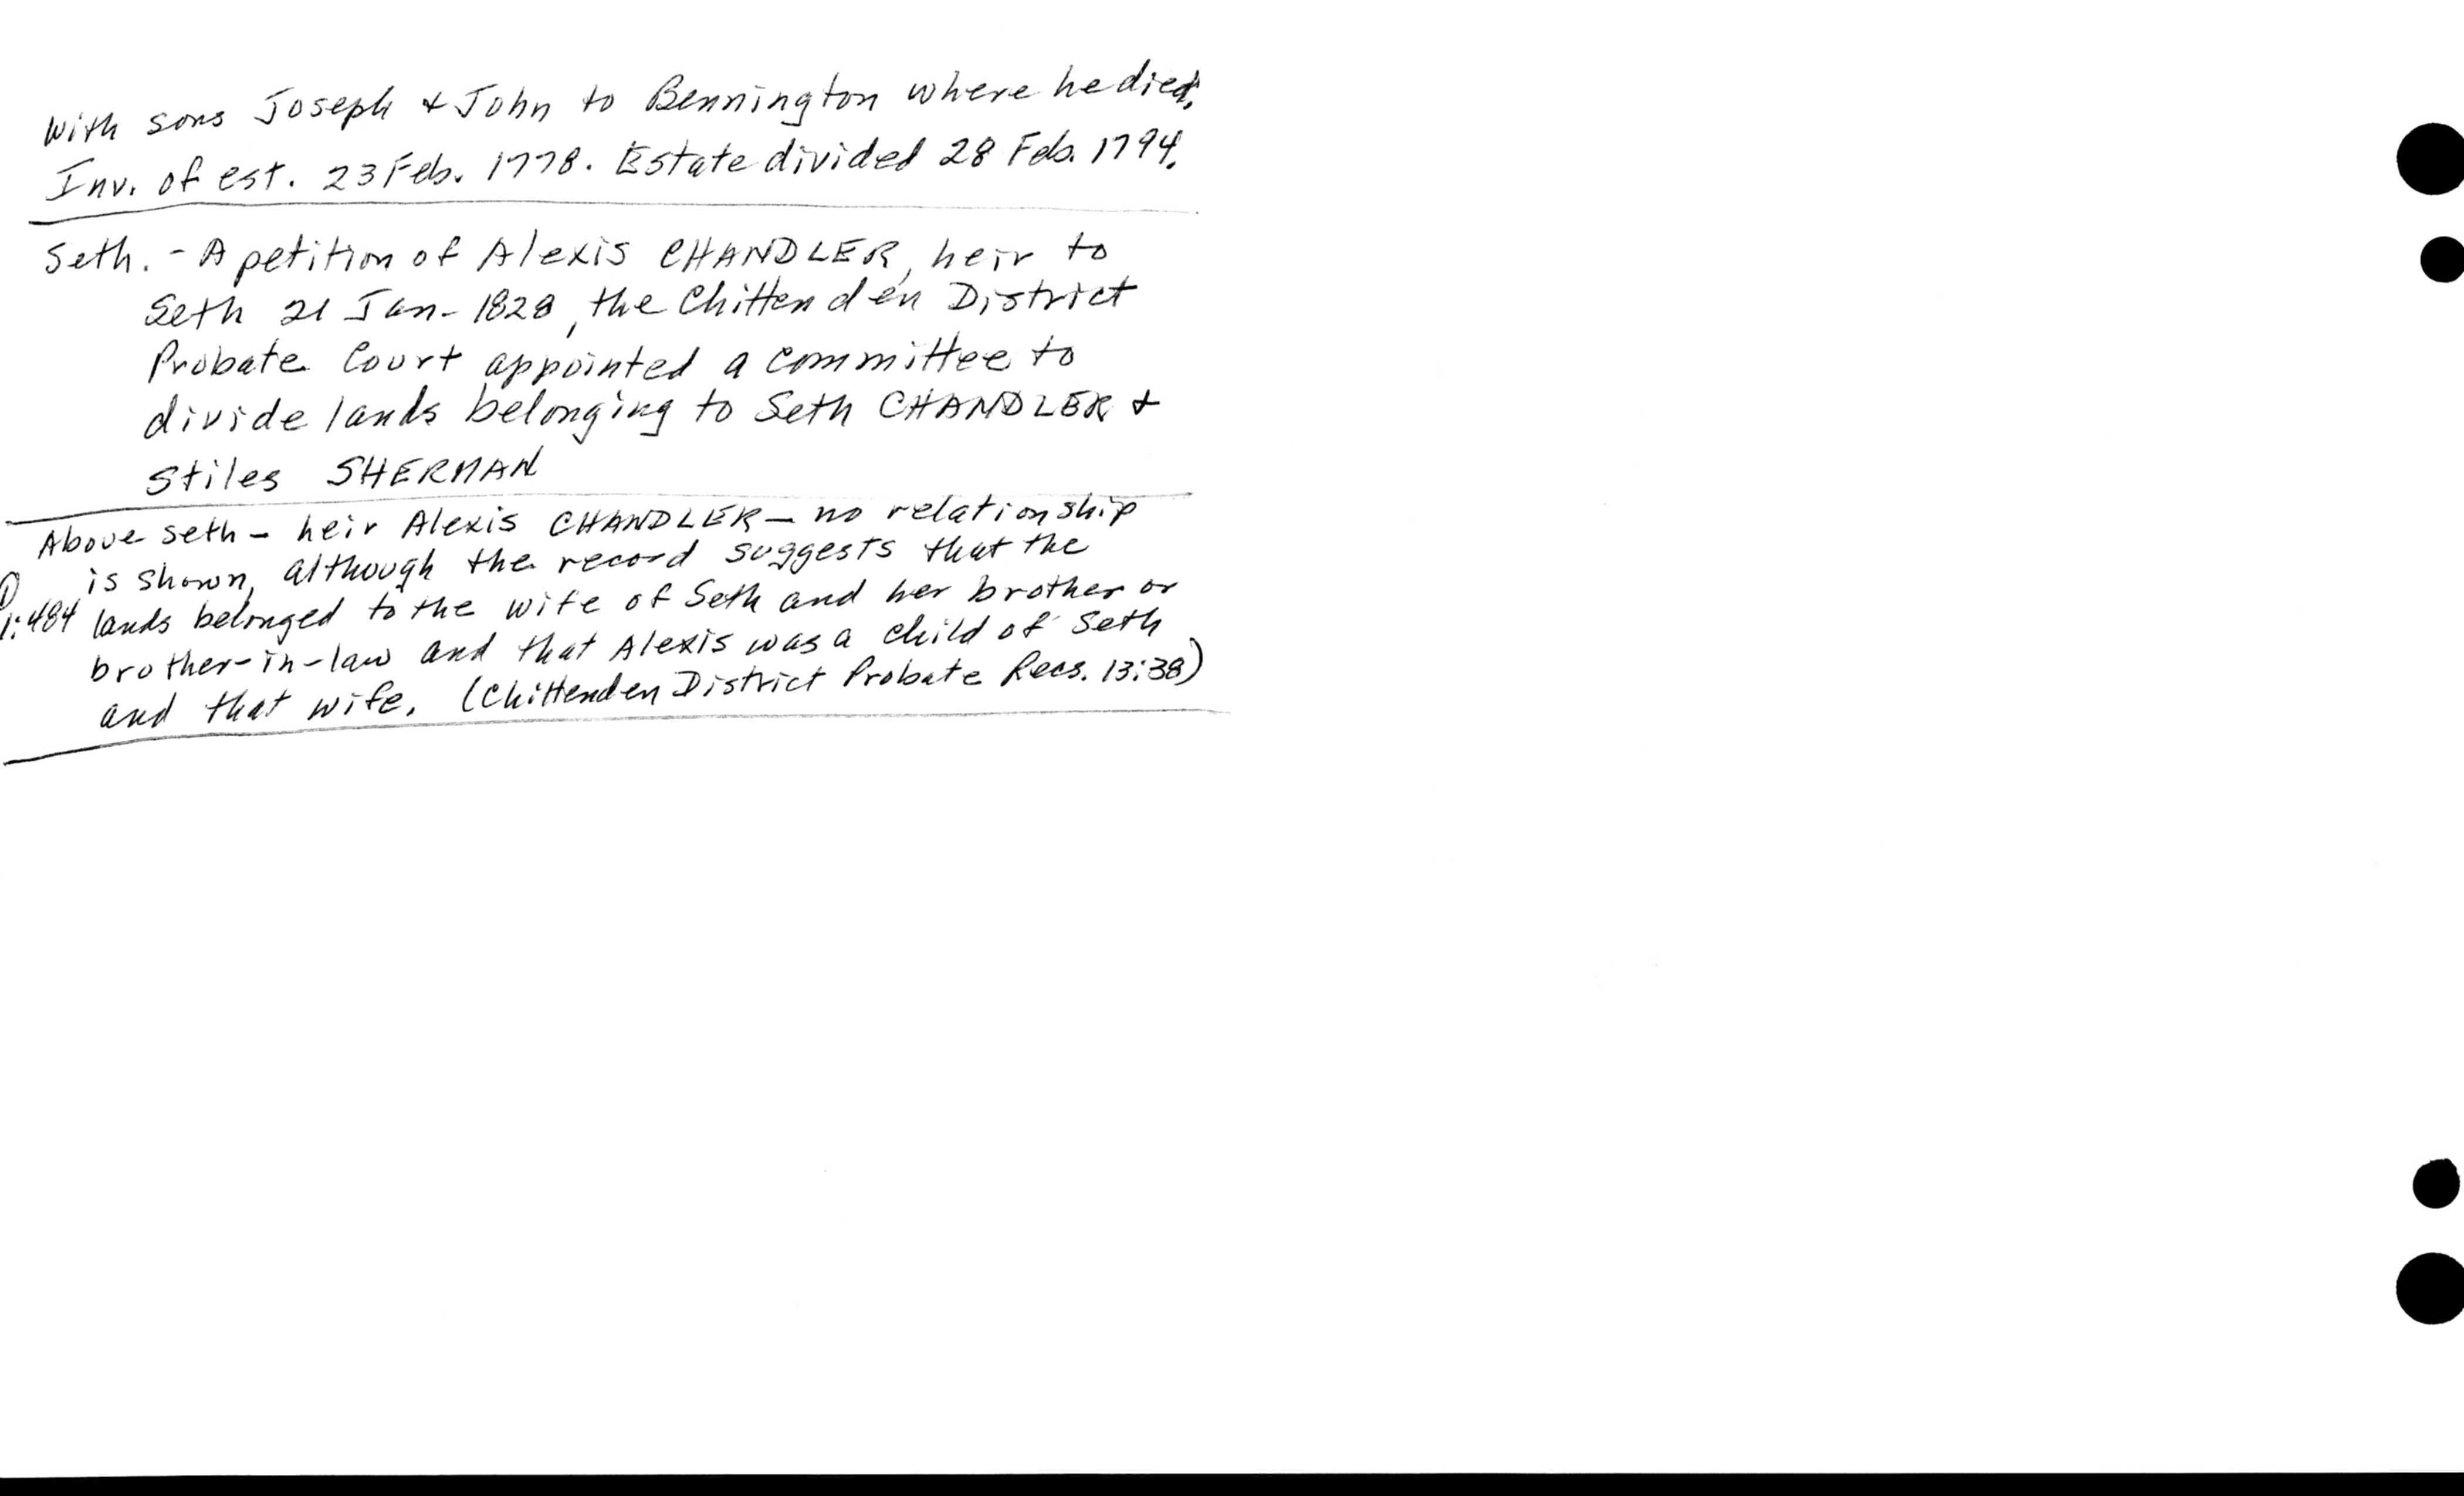 With sons Joseph & John to Bennington where he died.
Inv. of est. 23 Feb. 1778. Estate divided 28 Feb. 1794.
Seth. - A petition of Alexis CHANDLER, heir to
Seth 21 Jan- 1828, the Chittenden District
Probate Court appointed a committee to
divide lands belonging to Seth CHANDLER &
Stiles SHERMAN
Above Seth - heir Alexis CHANDLER - no relationship
is shown, although the record suggests that the
1:484 lands belonged to the wife of Seth and her brother or
brother-in-law and that Alexis was a child of Seth
and that wife. (Chittenden District Probate Recs. 13:38)